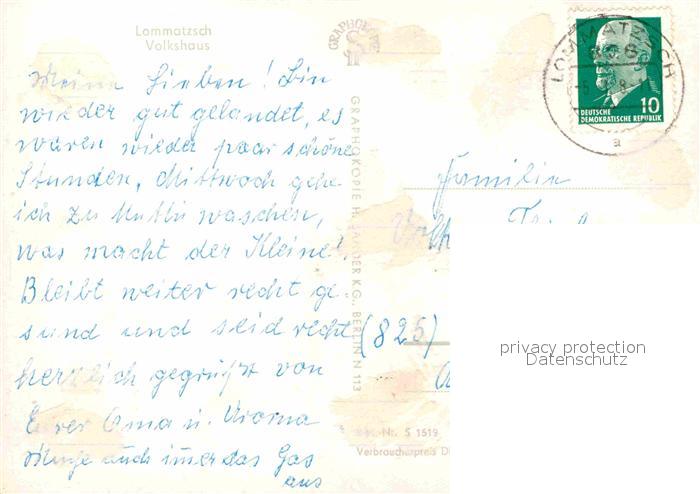 Lommatzsch
Volkshaus
Meine Lieben! Bin
wieder gut gelandet, es
waren wieder paar schöne
Stunden, Mittwoch gehe
ich zu Mutti waschen,
was macht der Kleine?
Bleibt weiter recht ge-
sund und seid recht
herzlich gegrüßt von
Eurer Oma u. Uroma
auch immer das Gas
aus
GRAPHOKOPIE H. KG., BERLIN N 113
LOMMATZSCH
a
10
DEUTSCHE
DEMOKRATISCHE REPUBLIK
Familie
(825)
-Nr. S 1519
Verbraucherpreis
privacy protection
Datenschutz